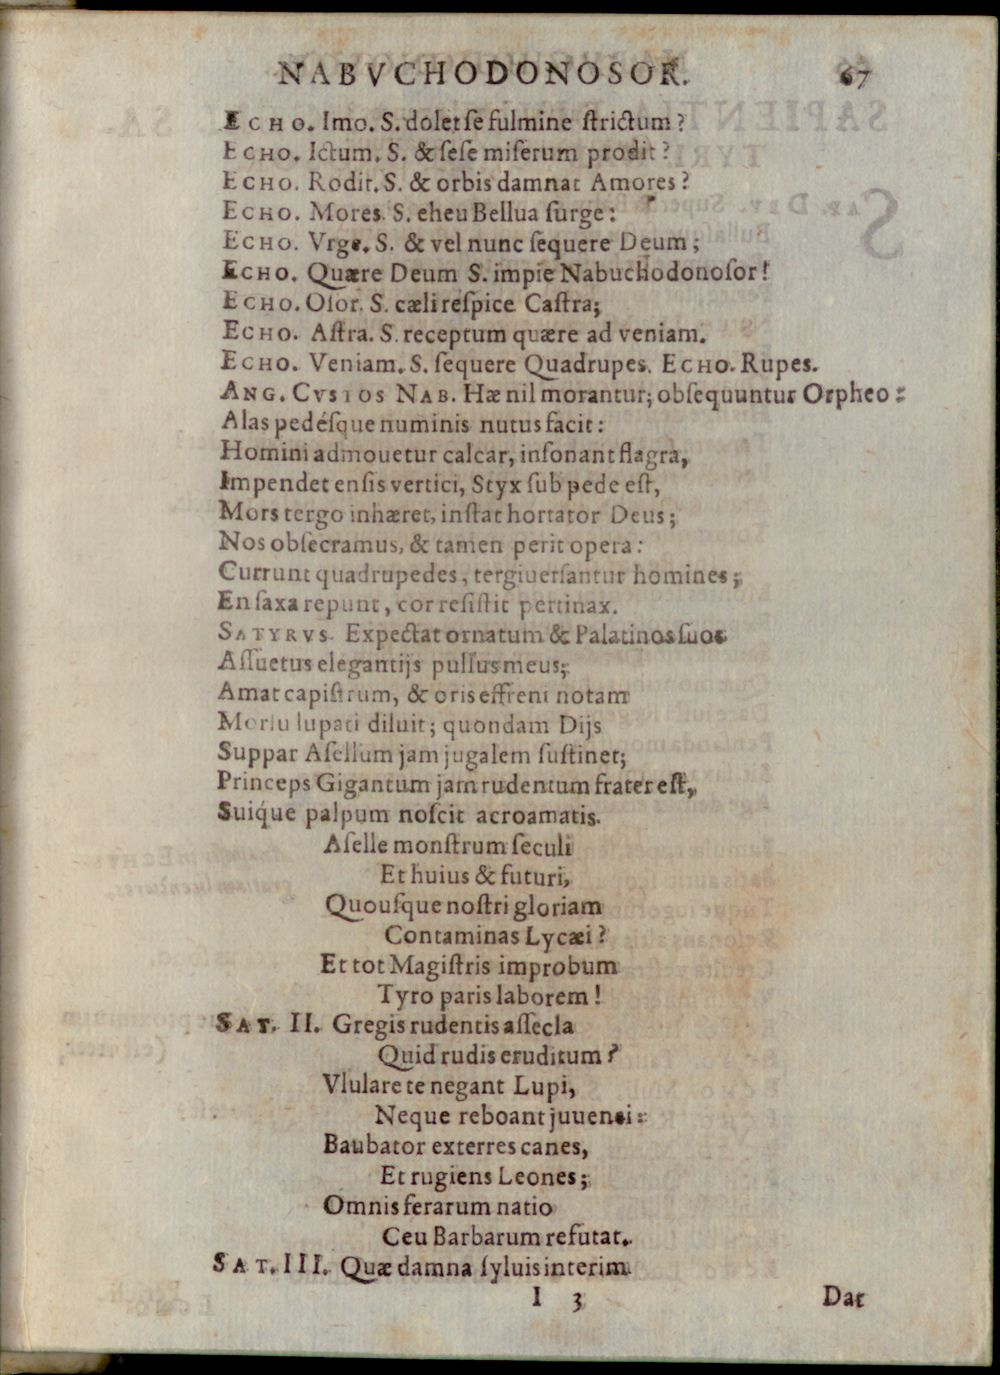 NABVCHODONOSOR. 67
ECHO. Imo. S. dolet se fulmine ſtrictum?
ECHO. Ictum. S. & ſeſe miſerum prodit?
ECHO. Rodit. S. & orbis damnat Amores?
ECHO. Mores. S. eheu Bellua ſurge:
ECHO. Vrge. S. & vel nunc ſequere Deum;
ECHO. Quære Deum S. impie Nabuchodonoſor!
ECHO. Oſor. S. cæli reſpice Caſtra;
ECHO. Aſtra. S. receptum quære ad veniam.
ECHO. Veniam. S. ſequere Quadrupes. ECHO. Rupes.
ANG. CVSTOS NAB. Hæ nil morantur; obſequuntur Orpheo:
Alas pedéſque numinis nutus facit:
Homini admouetur calcar, inſonant flagra,
Impendet enſis vertici, Styx ſub pede eſt,
Mors tergo inhæret, inſtat hortator Deus;
Nos obſecramus, & tamen perit opera:
Currunt quadrupedes, tergiuerſantur homines;
En ſaxa repunt, cor reſiſtit pertinax.
SATYRVS. Expectat ornatum & Palatinos ſuos
Aſſuetus elegantijs pulſus meus;
Amat capiſtrum, & oris effreni notam
Morſu lupati diluit; quondam Dijs
Suppar Aſellum jam jugalem ſuſtinet;
Princeps Gigantum jam rudentum frater eſt,
Suíque palpum noſcit acroamatis.
Aſelle monſtrum ſeculi
Et huius & futuri,
Quouſque noſtri gloriam
Contaminas Lycæi?
Et tot Magiſtris improbum
Tyro paris laborem!
SAT. II. Gregis rudentis aſſecla
Quid rudis eruditum?
Vlulare te negant Lupi,
Neque reboant juuenci:
Baubator exterres canes,
Et rugiens Leones;
Omnis ferarum natio
Ceu Barbarum refutat.
SAT. III. Quæ damna ſyluis interim
I 3 Dat